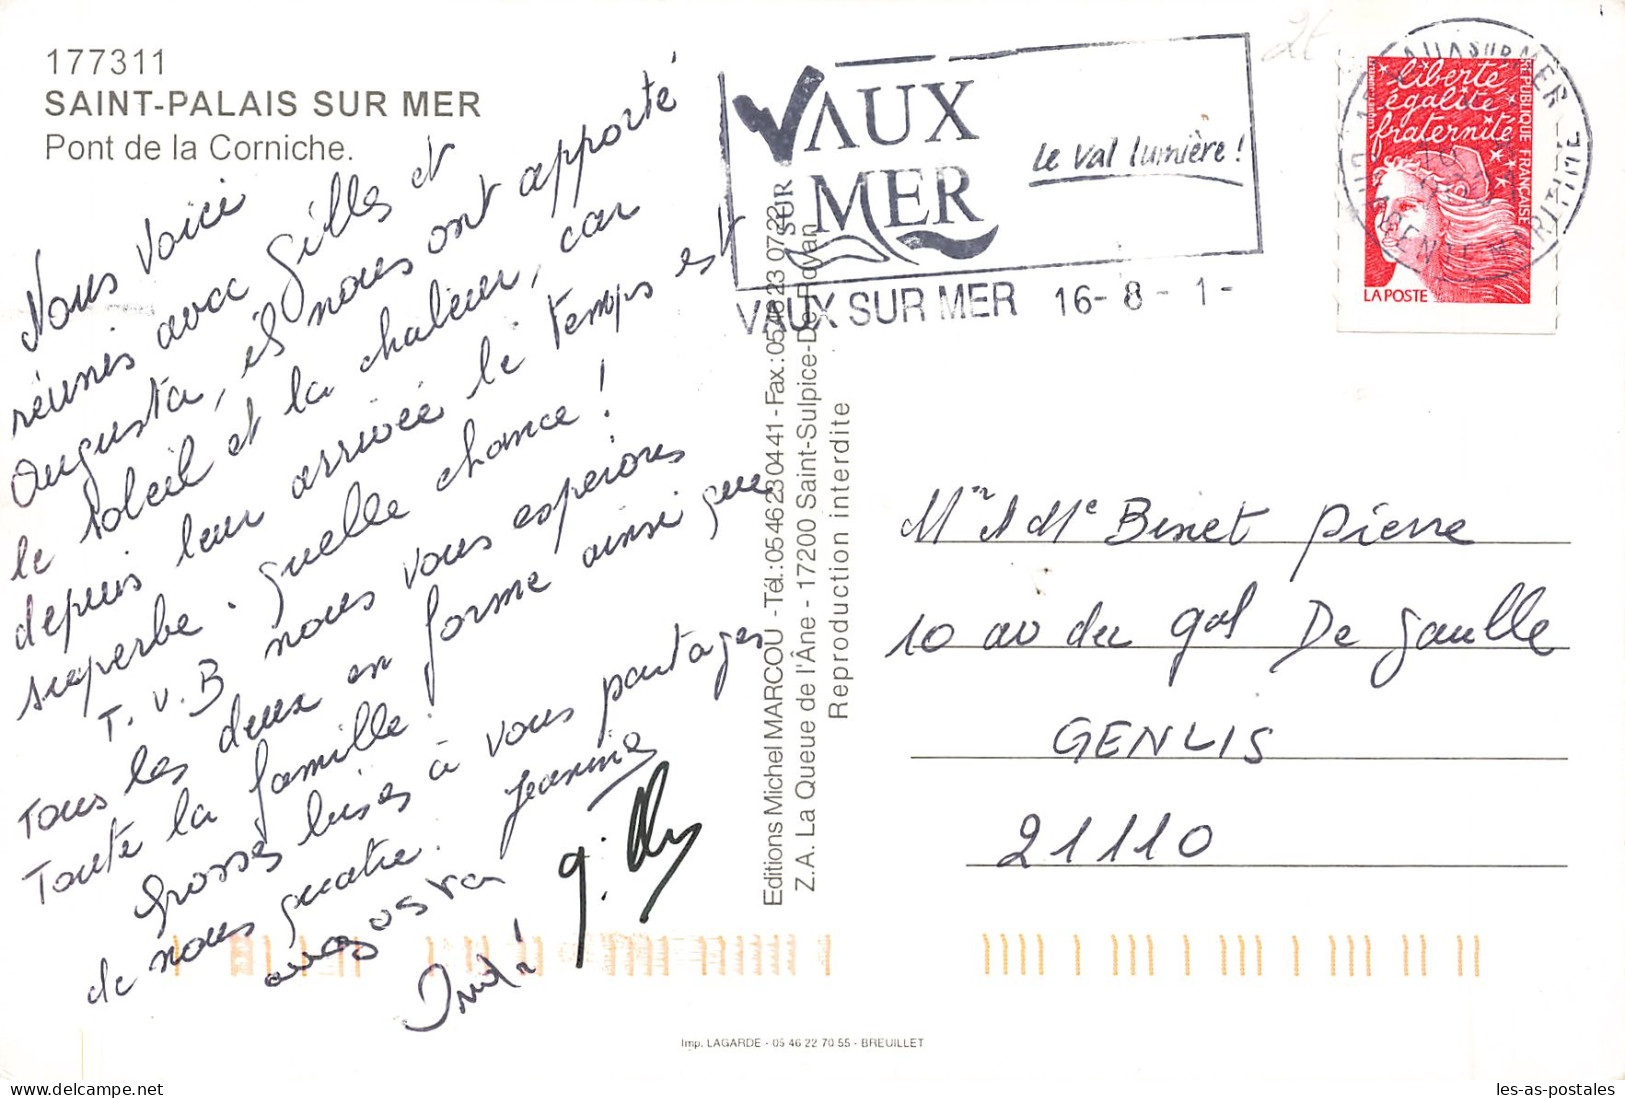 177311
SAINT-PALAIS SUR MER
Pont de la Corniche.
Nous voici
réunis avec Gilles et
Augusta, ils nous ont apporté
le soleil et la chaleur, car
depuis leur arrivée le temps est
superbe. quelle chance !
T.V.B nous vous esperons
tous les deux en forme ainsi que
Toute la famille.
Grosses bises à vous partager
de nous quatre. Jeannine
augosta
g. 
VAUX
SUR
MER
Le Val lumière !
VAUX SUR MER 16- 8 - 1 -
liberté
égalité
fraternité
RÉPUBLIQUE FRANÇAISE
LA POSTE
VAUX SUR MER
CHARENTE MARITIME
Editions Michel MARCOU - Tél.: 05 46 23 04 41 - Fax.: 05 46 23 07 22
Z.A. La Queue de l'Âne - 17200 Saint-Sulpice-De-Royan
Reproduction interdite
Mr et Me Binet Pierre
10 av du gal De Gaulle
GENLIS
21110
Imp. LAGARDE - 05 46 22 70 55 - BREUILLET
www.delcampe.net
les-as-postales